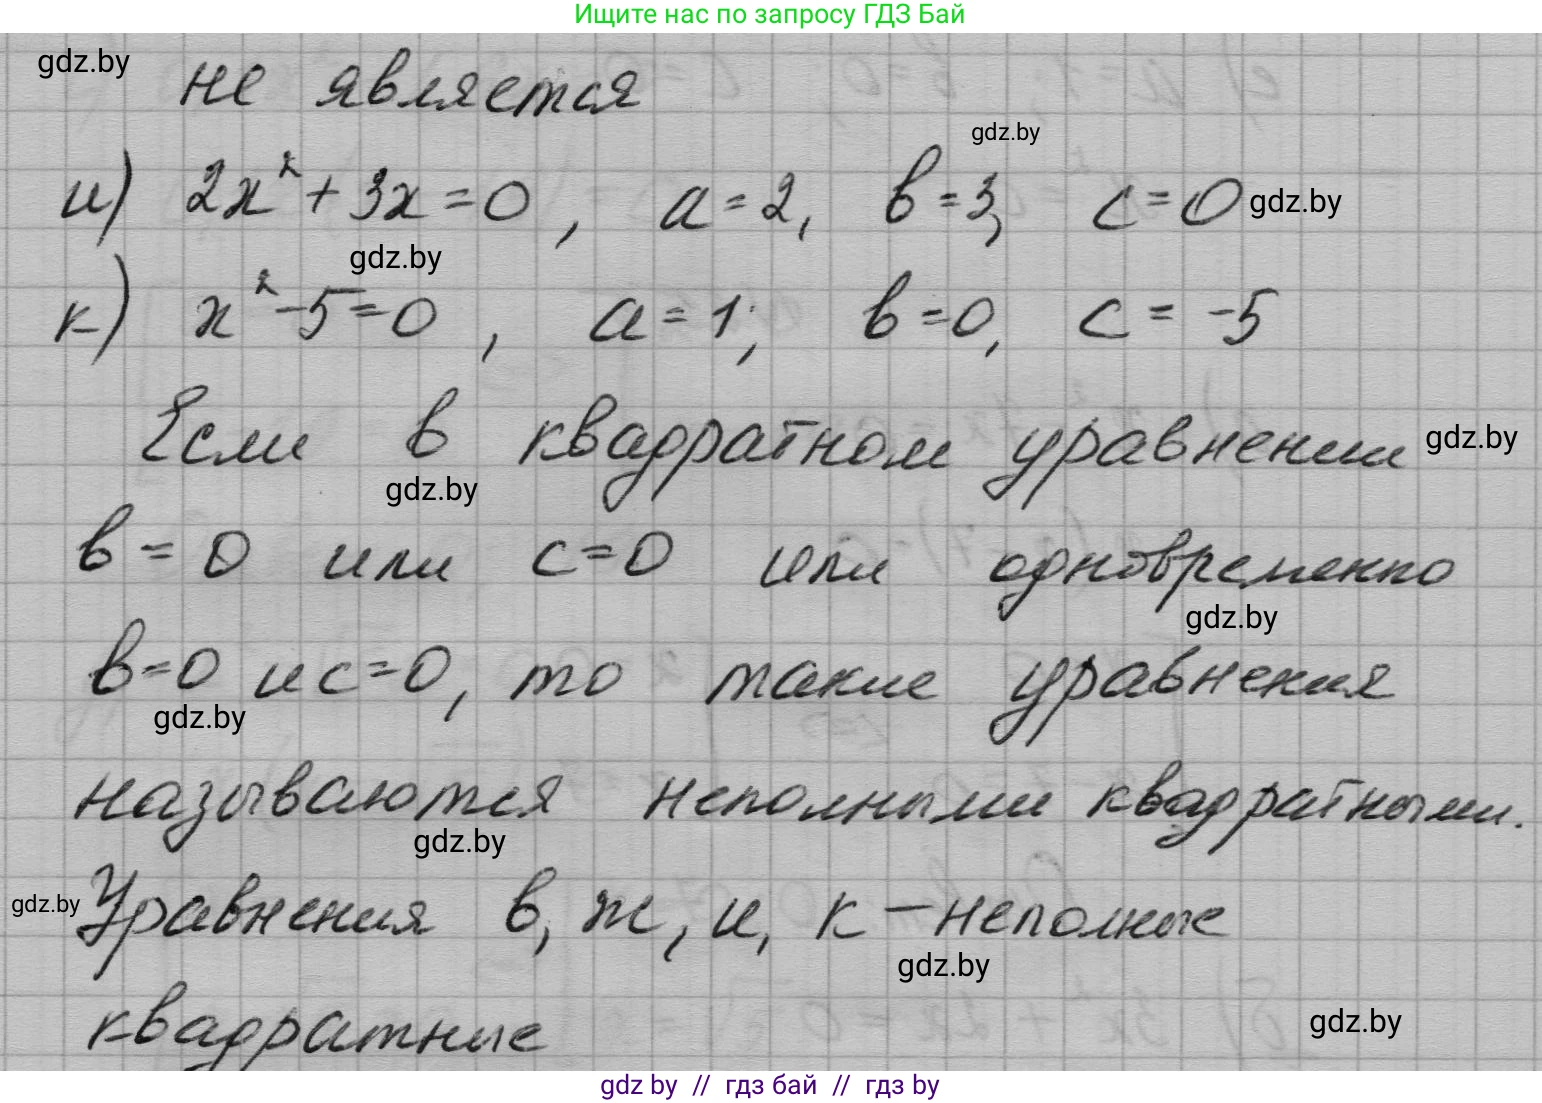 Ищите нас по запросу ГДЗ Бай
gdz.by
не является
gdz.by
и) 2x² + 3x = 0, a = 2, в = 3, c = 0 gdz.by
gdz.by
к) x² - 5 = 0, a = 1, в = 0, c = -5
Если в квадратном уравнении gdz.by
gdz.by
в = 0 или c = 0 или одновременно
gdz.by
в = 0 и c = 0, то такие уравнения
gdz.by
называются неполными квадратными.
gdz.by
gdz.by Уравнения в, ж, и, к – неполные
gdz.by
квадратные
gdz.by
gdz by // гдз бай // гдз by